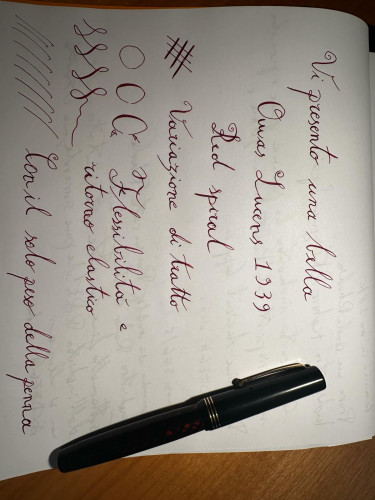 Vi presento una bella
Omas Lucens 1939
Red spiral
Variazione di tratto
Flessibilità e
ritorno elastico
Con il solo peso della penna